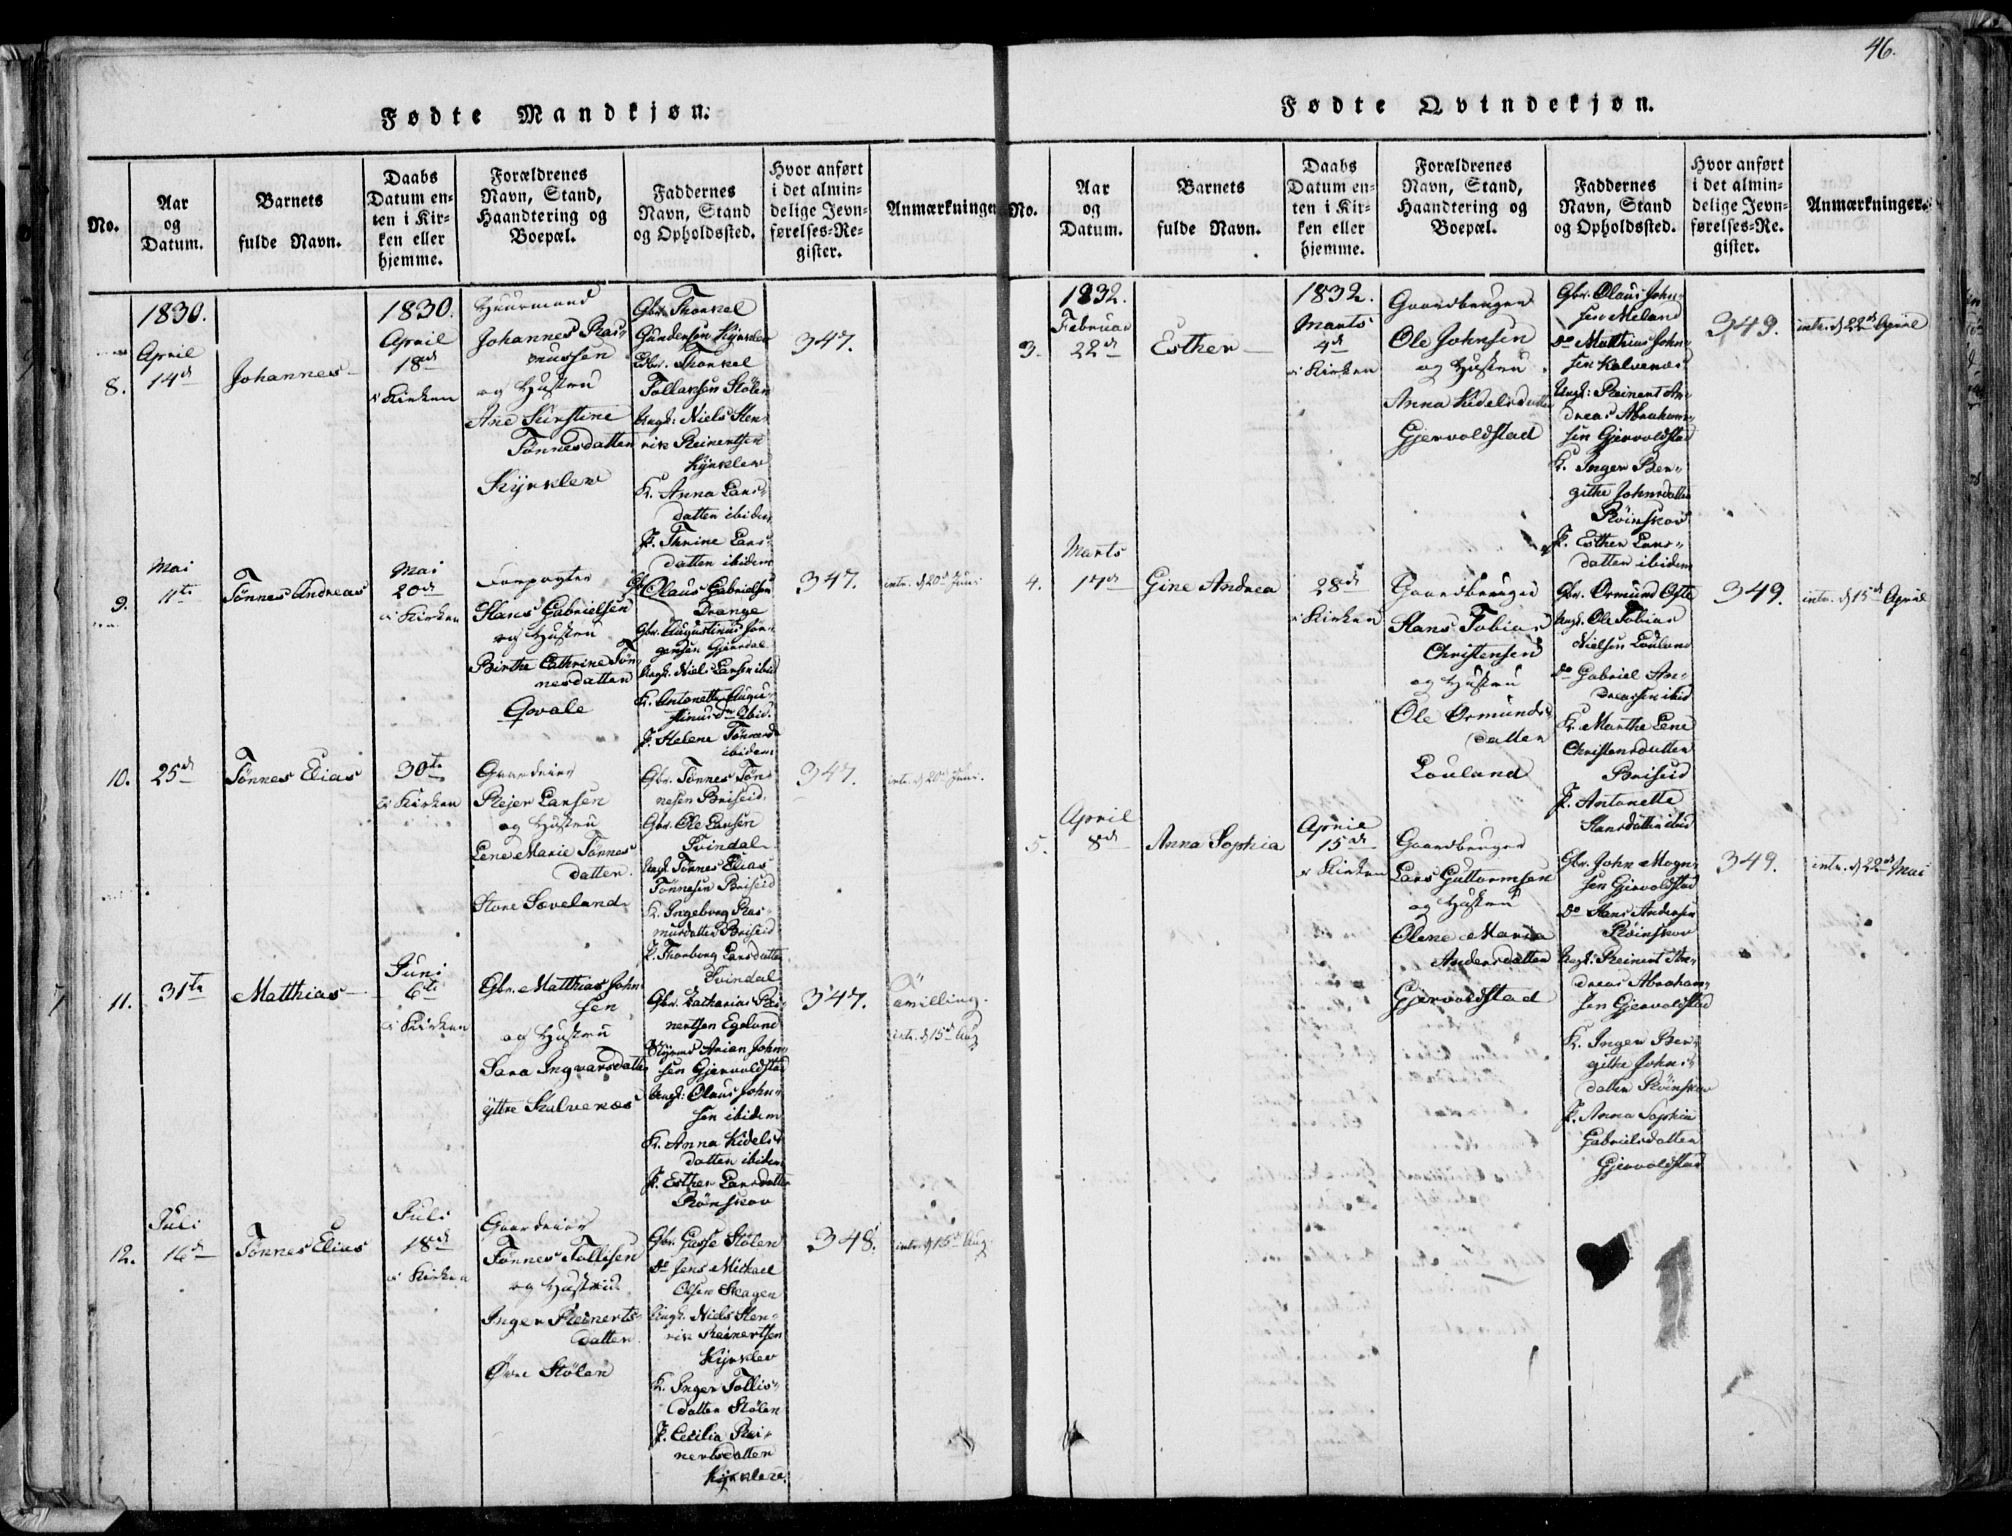 46.
Fødte Mandkjøn.
No.
Aar
og
Datum.
Barnets
fulde Navn.
Daabs
Datum en-
ten i Kir-
ken eller
hjemme.
Forældrenes
Navn, Stand,
Haandtering og
Boepæl.
Faddernes
Navn, Stand
og Opholdssted.
Hvor anført
i det almin-
delige Jevn-
førelses-Re-
gister.
Anmærkninge
1830.
April
8. 14de
Johannes
1830.
April
18de
i Kirken
Huusmand
Johannes Ras-
mussen
og Hustru
Ane Kirstine
Tønnesdatter
Kyrklev
Gbr. Thorkel
Gundersen Kyrklev
Gbr. Thorkel
Tollaksen Stølen
Ungk: Niels Hen-
rik Reinertsen
Kyrklev
K. Anna Lars-
datter ibidem
P. Thrine Lars-
datter ibidem
347.
Mai
9. 11te
Tønnes Andreas
Mai
20de
i Kirken
Forpagter
Hans Gabrielsen
og Hustru
Birthe Cathrine Tøn-
nesdatter
Qvale
Gbr. Claus Gabrielsen
Drange
Gbr. Augustinus Jør-
gensen Gjerdal
Ungk. Niels Larsen ibid
K. Antonette Augu-
stinusdr ibid.
P. Helene Tønnesdr
ibidem
347.
intr. d 20de Juni
10. 25de
Tønnes Elias
30te
i Kirken
Gaardeier
Reier Larsen
og Hustru
Lene Marie Tønnes
datter
Store Sæveland
Gbr. Tønnes Tøn-
nesen Briseid
Gbr. Ole Larsen
Svindal
Ungk. Tønnes Elias
Tønnesen Briseid
K. Ingeborg Ras-
musdatter Briseid
P. Thorborg Larsdatter
Svindal
347.
intr. d 20de Juni.
11. 31te
Matthias
Juni
6te
i Kirken
Gbr. Matthias John-
sen
og Hustru
Sara Ingvarsdatter
yttre Kalvenæs
Gbr. Zacharias Rei-
nertsen Egeland
Arian John-
sen Gjervoldstad
Ungk: Olaus John-
sen ibidem
K. Anna Kidels-
datter ibidem
P. Esther Larsdatter
Røinskov
347.
Tvilling.
intr. d 15de Aug
Juli
12. 16de
Tønnes Elias
Juli
18de
i Kirken
Gaardeier
Tønnes Tollisen
og Hustru
Inger Reinerts-
datter
Øvre Stølen
Gbr. Gasse Stølen
Do Jens Mickael
Olsen Skagen
Ungk. Niels Hen-
rik Reinertsen
Kyrklev
K. Inger Tollis-
datter Stølen
P. Cecilia Rei-
nertsdatter
Kyrklev
348.
intr. d 15de Aug.
Fødte Qvindekjøn.
No.
Aar
og
Datum.
Barnets
fulde Navn.
Daabs
Datum en-
ten i Kir-
ken eller
hjemme.
Forældrenes
Navn, Stand,
Haandtering og
Boepæl.
Faddernes
Navn, Stand
og Opholdssted.
Hvor anført
i det almin-
delige Jevn-
førelses-Re-
gister.
Anmærkninger.
1832.
Februar
3. 22de
Esther
1832.
Marts
4de
i Kirken
Gaardbruger
Ole Johnsen
og Hustru
Anna Kidelsdatter
Gjervoldstad
Gbr. Olaus John-
sen Meland
Do Matthias John-
sen Kalvenæs
Ungk: Reinert An-
dreas Abraham-
sen Gjervoldstad
K. Inger Ber-
githe Johnsdatter
Røinskov
P. Esther Lars-
datter ibidem
349.
intr. d 22de April
Marts
4. 17de
Gine Andrea
28de
i Kirken
Gaardbruger
Hans Tobias
Christensen
og Hustru
Ole Ormunds-
datter
Louland
Gbr. Ormund Ofte
Ungk. Ole Tobias
Nielsen Louland
Do Gabriel An-
dreassen ibid
K. Marthe Lene
Christensdatter
Briseid
P. Antonette
Hansdatter ibid
349.
intr. d 15de April
April
5. 8de
Anna Sophia
April
15de
i Kirken
Gaardbruger
Lars Guttormsen
og Hustru
Olene Maria
Andersdatter
Gjervoldstad
Gbr. John Mogn-
sen Gjervoldstad
Do Hans Andersen
Røinskov
Ungk: Reinert An-
dreas Abraham-
sen Gjervoldstad
K. Inger Ber-
githe Johns-
datter Røinskov
P. Anna Sophia
Gabrielsdatter
Gjervoldstad
349.
intr. d 22de Mai